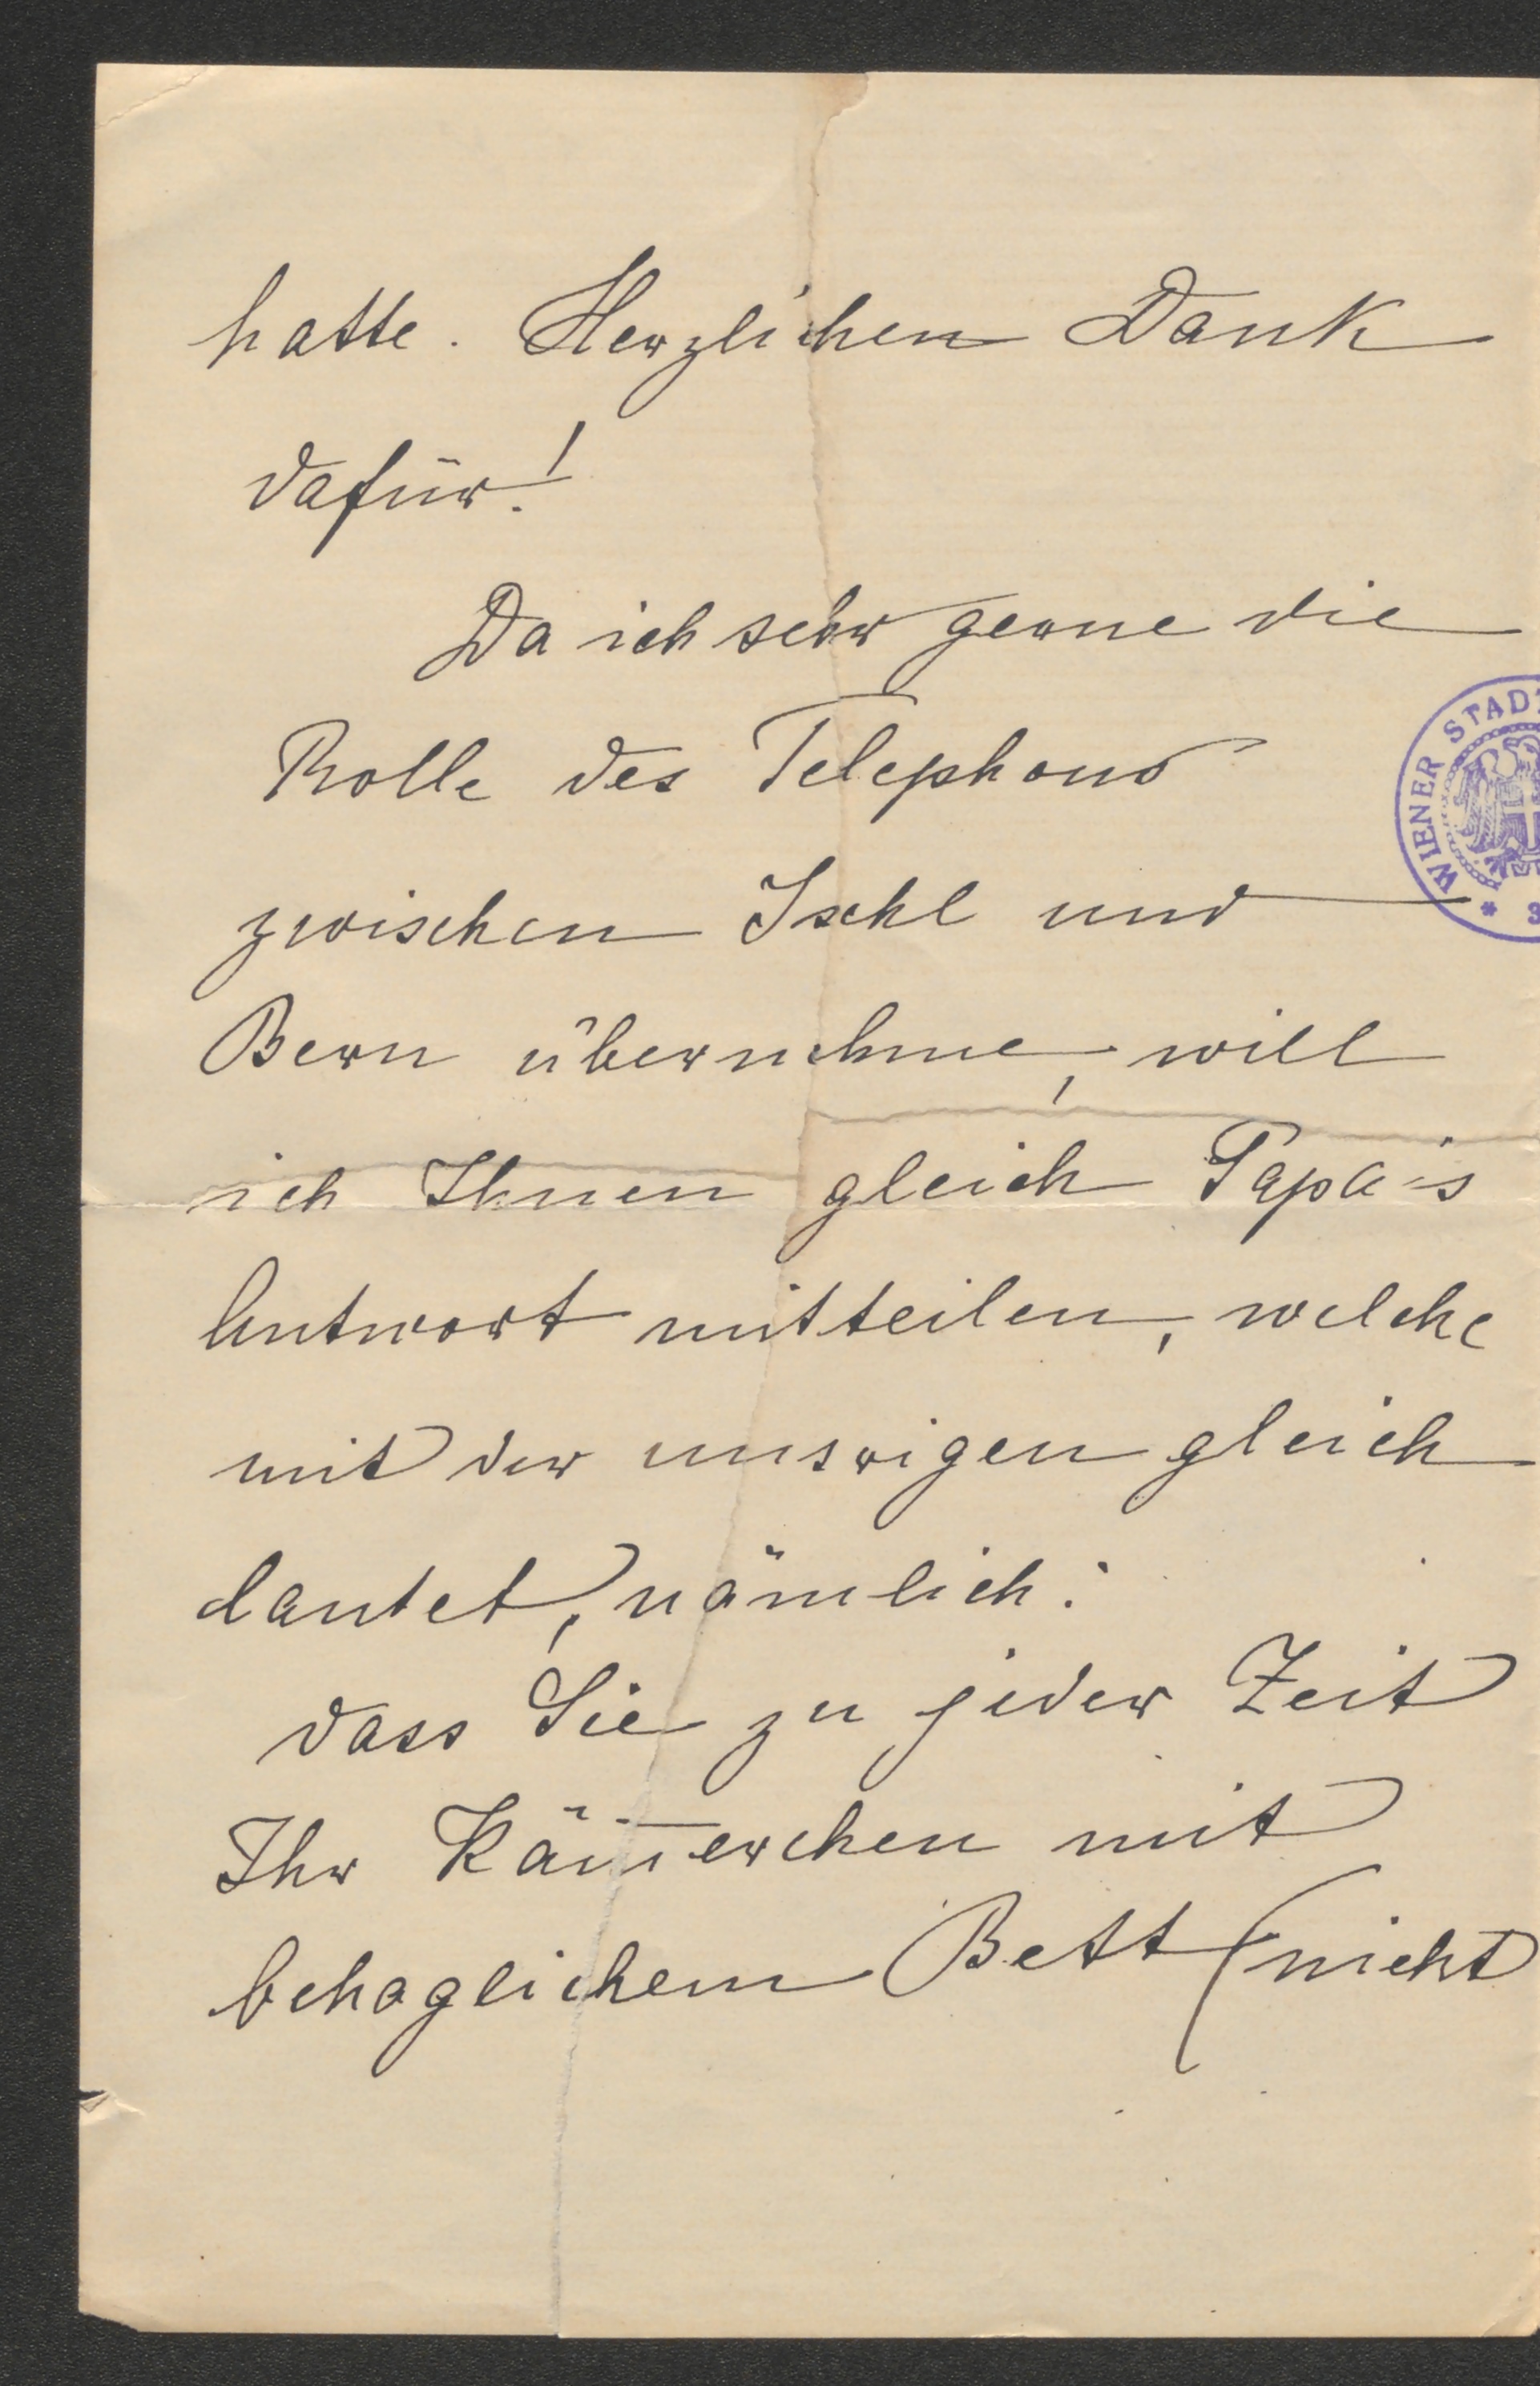 hatte. Herzlichen Dank
dafür!
Da ich sehr gerne die
Rolle des Telephons
zwischen Ischl und
WIENER STAD
* 3
Bern übernehme, will
ich Ihnen gleich Papa's
Antwort mitteilen, welche
mit der unsrigen gleich
lautet, nämlich:
dass Sie zu jeder Zeit
Ihr Käm̅erchen mit
behaglichem Bett (nicht